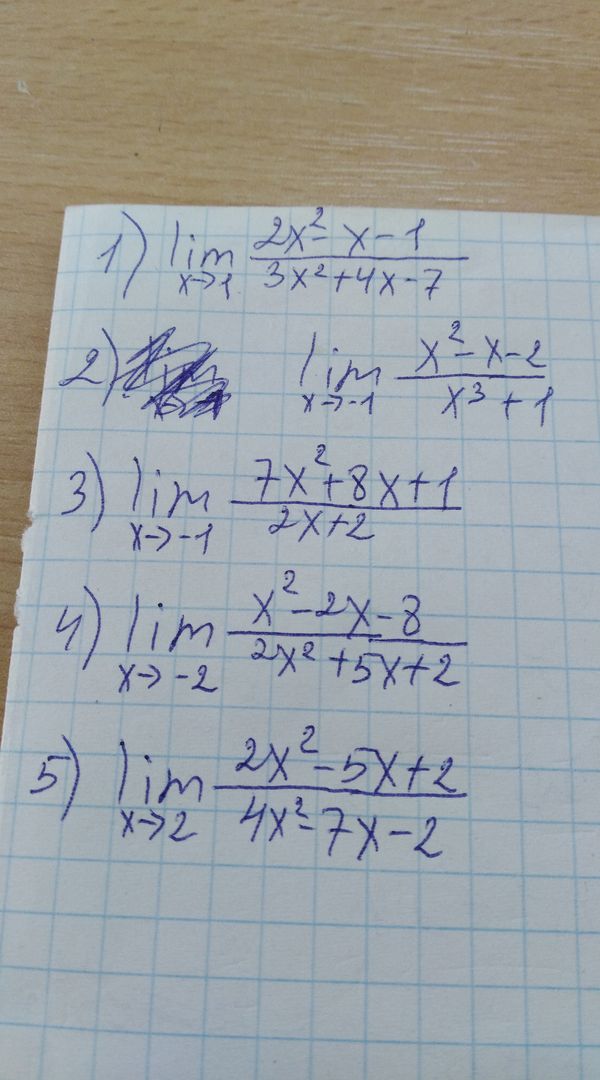 1) lim x→1 (2x² - x - 1)/(3x² + 4x - 7)
2) lim x→-1 (x² - x - 2)/(x³ + 1)
3) lim x→-1 (7x² + 8x + 1)/(2x + 2)
4) lim x→-2 (x² - 2x - 8)/(2x² + 5x + 2)
5) lim x→2 (2x² - 5x + 2)/(4x² - 7x - 2)